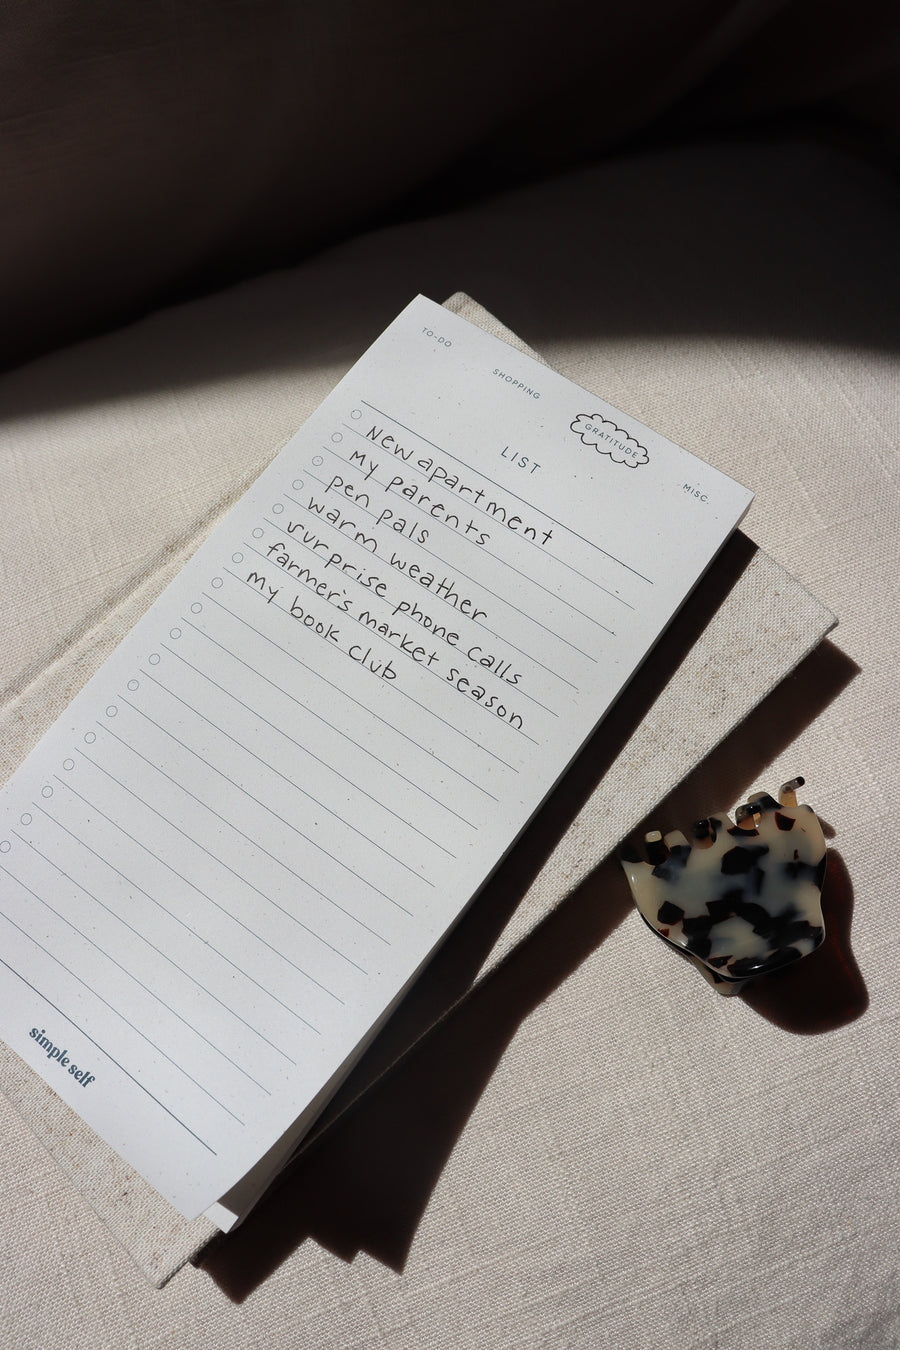 TO-DO
SHOPPING
GRATITUDE
MISC.
LIST
New apartment
my parents
pen pals
warm weather
surprise phone calls
farmer's market season
my book club
simple self